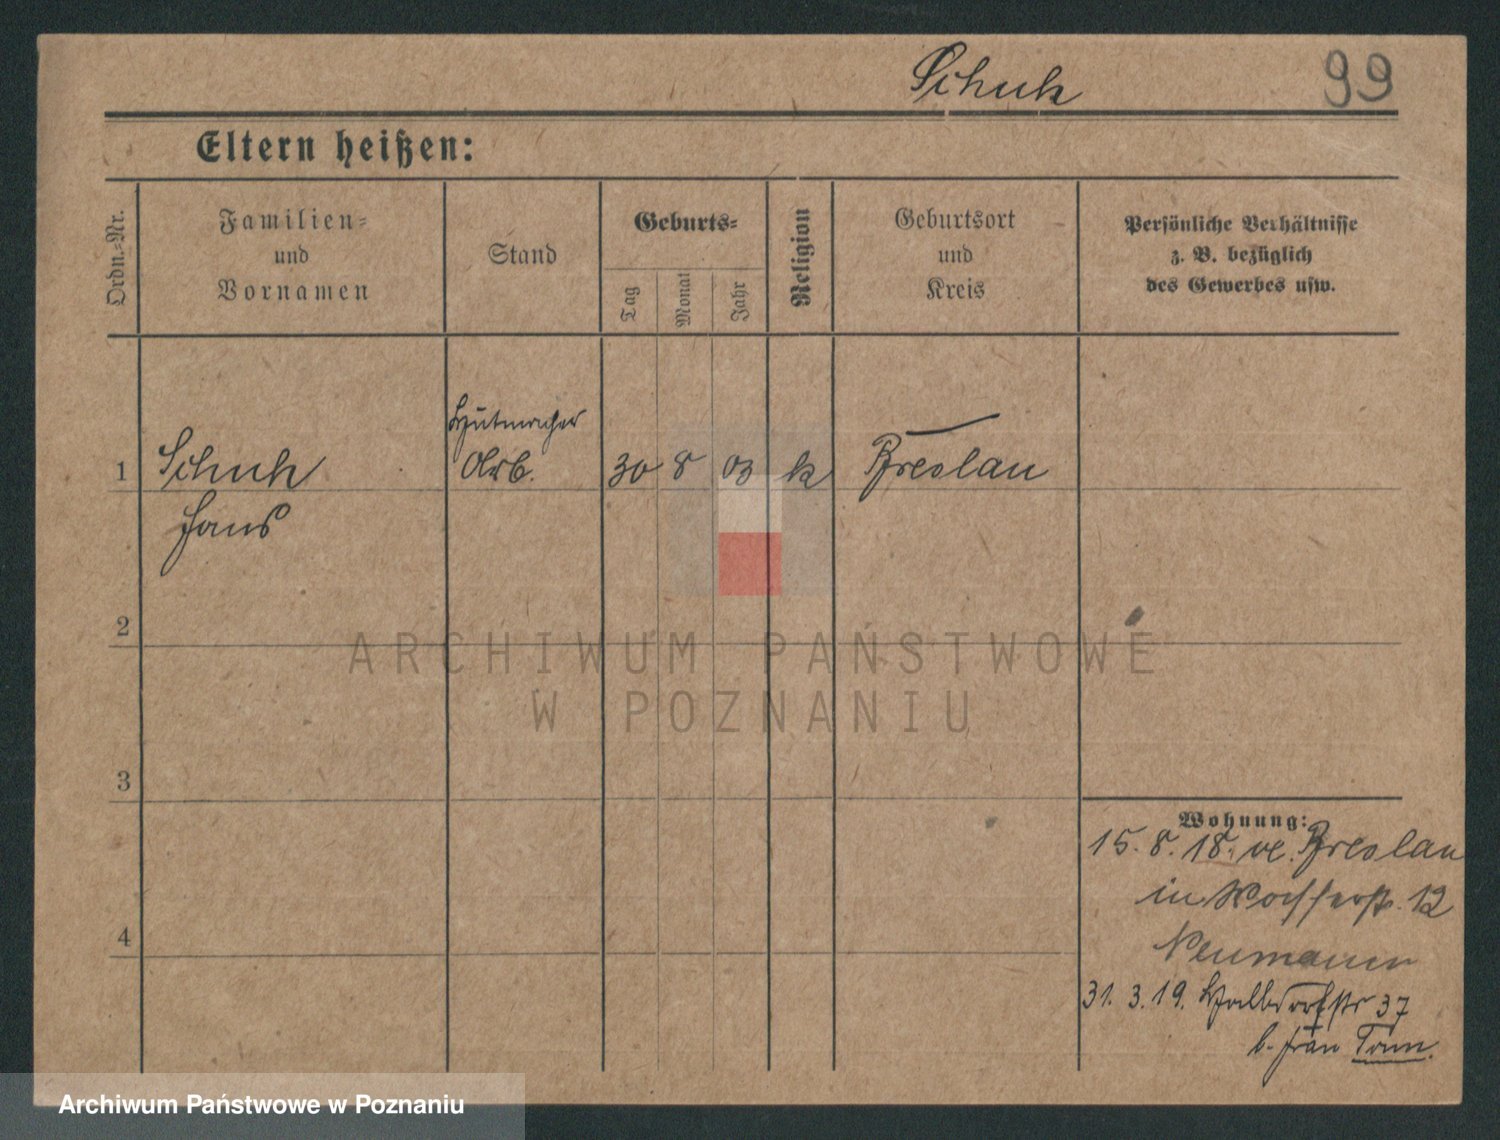 Schuh 99
Eltern heißen:
Ordn.-Nr.
Familien-
und
Vornamen
Stand
Geburts-
Tag
Monat
Jahr
Religion
Geburtsort
und
Kreis
Persönliche Verhältnisse
z. B. bezüglich
des Gewerbes usw.
Hutmacher
1 Schuh Arb. 30 8 03 k Breslau
Hans
2
3
4
Wohnung:
15. 8. 18. v. Breslau
in 12
Neumann
31. 3. 19. 37
b. Frau Tonn.
ARCHIWUM PAŃSTWOWE
W POZNANIU
Archiwum Państwowe w Poznaniu